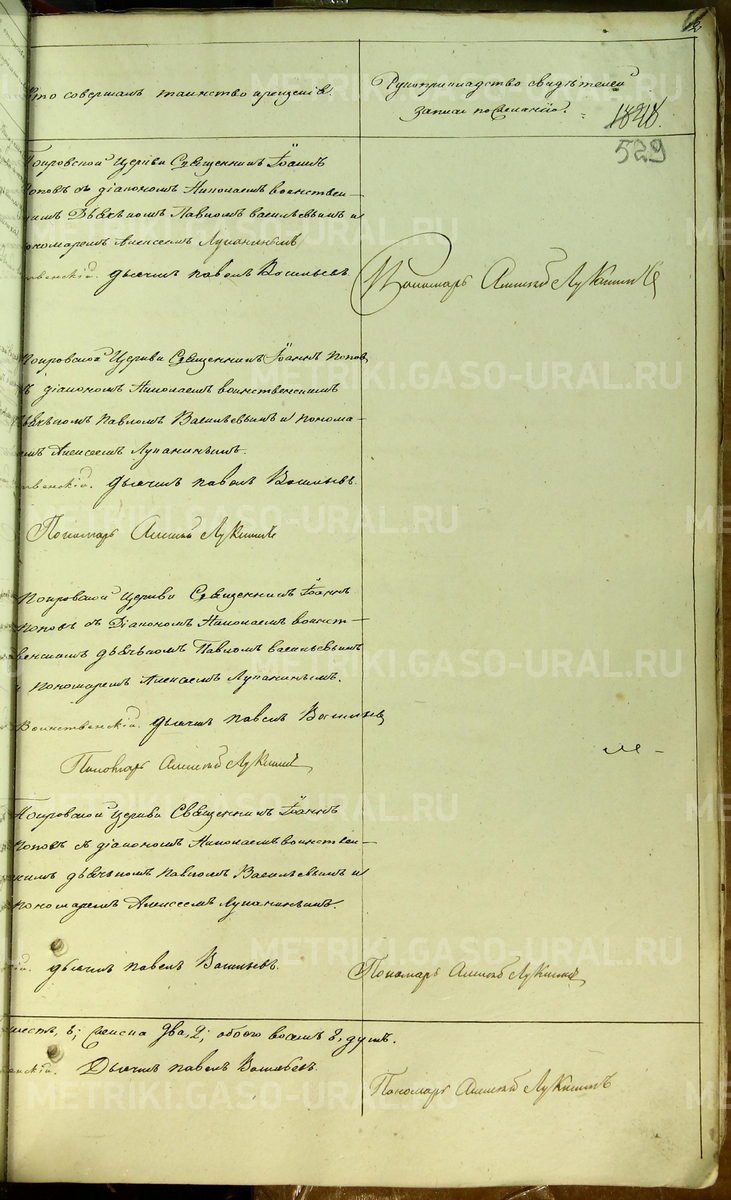 12
Кто совершалъ таинство крещенія.
Рукоприкладство свидѣтелей
записи по желанію.
1848.
529
Покровской Церкви Священникъ Іоаннъ
Поповъ съ діакономъ Николаемъ воинствен-
скимъ Дьячкомъ Павломъ васильевымъ и
пономаремъ Алексеемъ Луканинымъ
твенскій. дьячекъ павелъ Васильевъ
Пономарь Алексей Лукинъ
Покровской Церкви Священникъ Іоаннъ Попов
ъ діакономъ Николаемъ воинственскимъ
Дьячкомъ Павломъ Васильевымъ и понома-
емъ Алексеемъ Луканинымъ.
твенскій. дьячекъ павелъ Васильевъ
Пономарь Алексей Лукинъ
Покровской церкви Священникъ Іоаннъ
Поповъ съ Діакономъ Николаемъ воинст-
венскимъ дьячкомъ Павломъ васильевымъ
и пономаремъ Алексеемъ Луканинымъ.
Воинственскій. дьячекъ павелъ Васильев
Пономарь Алексей Лукинъ
Покровской церкви Священникъ Іоаннъ
Поповъ съ діакономъ Николаемъ воинствен-
скимъ дьячкомъ Павломъ Васильевымъ и
пономаремъ Алексеемъ Луканинымъ.
ій. дьячекъ павелъ Васильевъ.
Пономарь Алексей Лукинъ
шесть, 6; женска два, 2; обоего восемь 8, душъ.
енскій. Дьячекъ павелъ Васильевъ.
Пономарь Алексей Лукинъ
METRIKI.GASO-URAL.RU